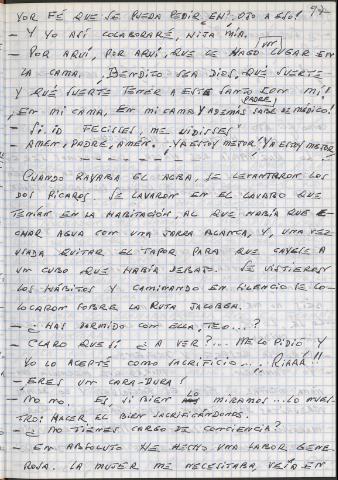 97-
YOR FÉ QUE SE PUEDA PEDIR EN? ¡OJO A ESO!
- Y YO ASÍ COLABORARÉ, HIJA MIA.
- POR AQUÍ, POR AQUÍ, QUE LE HAGO UN LUGAR EN
LA CAMA. ¡BENDITO SEA DIOS, QUÉ SUERTE
Y QUÉ SUERTE TENER A ESTE SANTO CON MI!
¡EN MI CAMA, EN MI CAMA Y ADEMÁS PADRE SABE DE MÉDICO!
- SI ID FECISSES, ME VIDISSES
AMEN, PADRE, AMEN. ¡YA ESTOY MEJOR! ¡YA ESTOY MEJOR!
- - - - - - -
CUANDO RAYABA EL ALBA, SE LEVANTARON LOS
DOS PÍCAROS. SE LAVARON EN EL LAVABO QUE
TENÍAN EN LA HABITACIÓN, AL QUE HABÍA QUE E-
CHAR AGUA CON UNA JARRA BLANCA, Y, UNA VEZ
USADA QUITAR EL TAPON PARA QUE CAYESE A
UN CUBO QUE HABÍA DEBAJO. SE VISTIERON
LOS HÁBITOS Y CAMINANDO EN SILENCIO SE CO-
LOCARON SOBRE LA RUTA JACOBEA.
- ¿HAS DORMIDO CON ELLA, TEO...?
- CLARO QUE SÍ ¿A VER?... ME LO PIDIÓ Y
YO LO ACEPTÉ COMO SACRIFICIO... ¡RIÁÁÁ!!
- ERES UN CARA-DURA!
- NO NO. ES, SI BIEN LO MIRAMOS... LO NUES
TRO: HACER EL BIEN SACRIFICÁNDONOS.
- ¿NO TIENES CARGO DE CONCIENCIA?
- EN ABSOLUTO HE HECHO UNA LABOR GENE
ROSA. LA MUJER ME NECESITABA, VEÍA EN